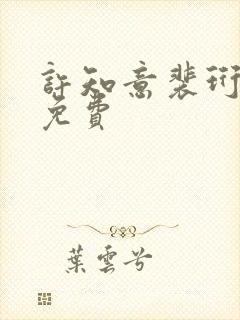 許知意裴珩
免費
葉雲兮